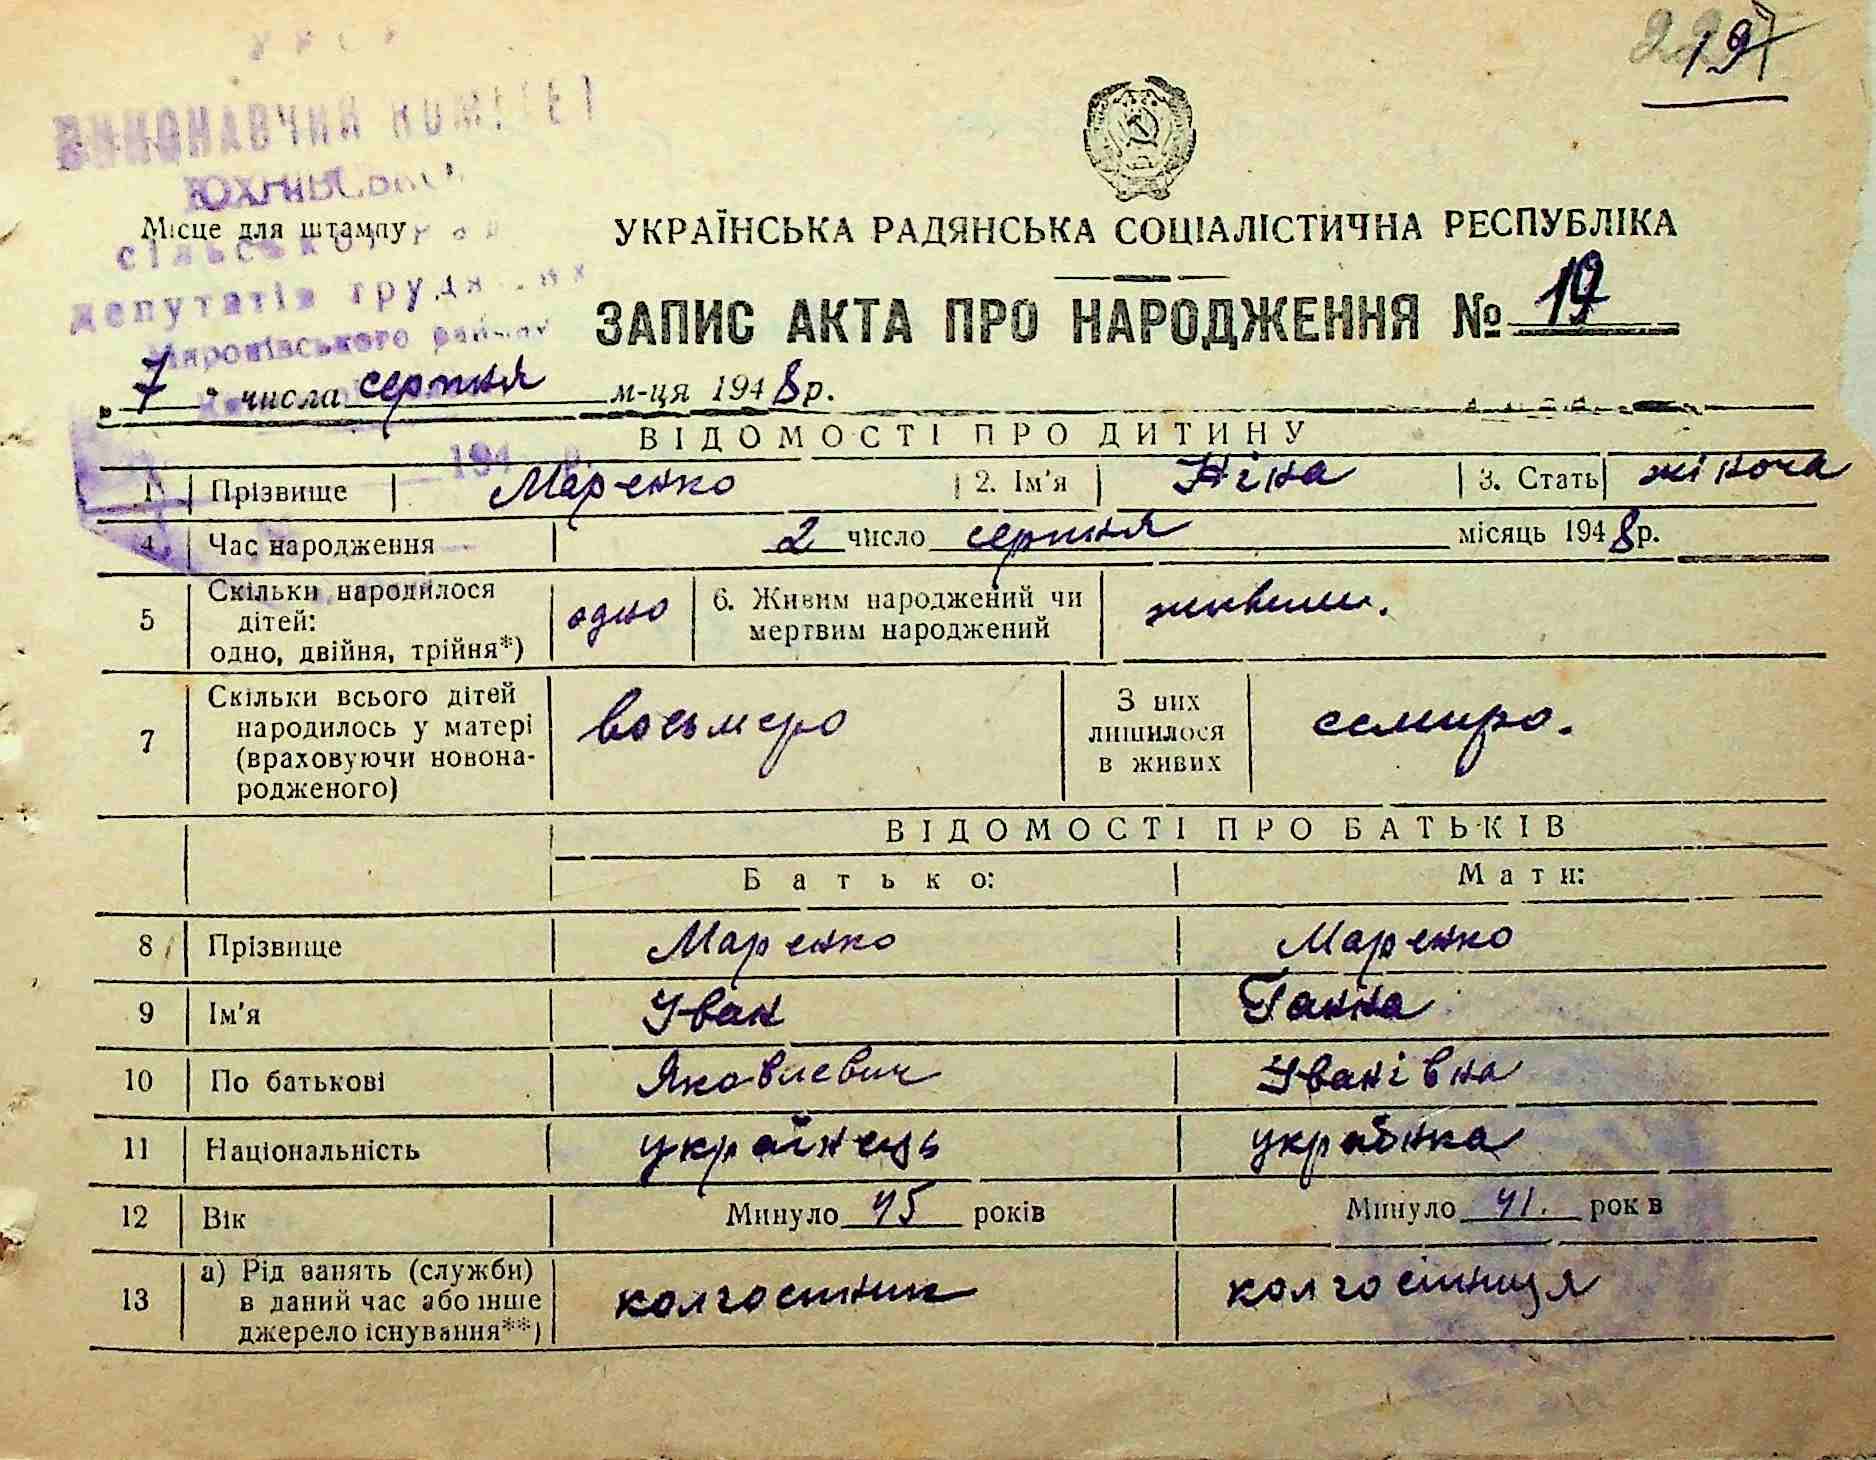 19
ВИКОНАВЧИЙ КОМІТЕТ
ЮХНІВСЬКОЇ
Місце для штампу
сільської ради
депутатів трудящих
Миронівського району
УКРАЇНСЬКА РАДЯНСЬКА СОЦІАЛІСТИЧНА РЕСПУБЛІКА
ЗАПИС АКТА ПРО НАРОДЖЕННЯ № 19
„ 7 " числа серпня м-ця 1948 р.
ВІДОМОСТІ ПРО ДИТИНУ
1 Прізвище Маренко 2. Ім'я Ніна 3. Стать жіноча
4 Час народження 2 число серпня місяць 1948 р.
5 Скільки народилося дітей: одно, двійня, трійня*) одно 6. Живим народжений чи мертвим народжений живим.
7 Скільки всього дітей народилось у матері (враховуючи новонародженого) восьмеро З них лишилося в живих семиро.
ВІДОМОСТІ ПРО БАТЬКІВ
Батько: Мати:
8 Прізвище Маренко Маренко
9 Ім'я Іван Ганна
10 По батькові Яковлевич Іванівна
11 Національність українець українка
12 Вік Минуло 45 років Минуло 41. років
13 а) Рід занять (служби) в даний час або інше джерело існування**) колгоспник колгоспниця